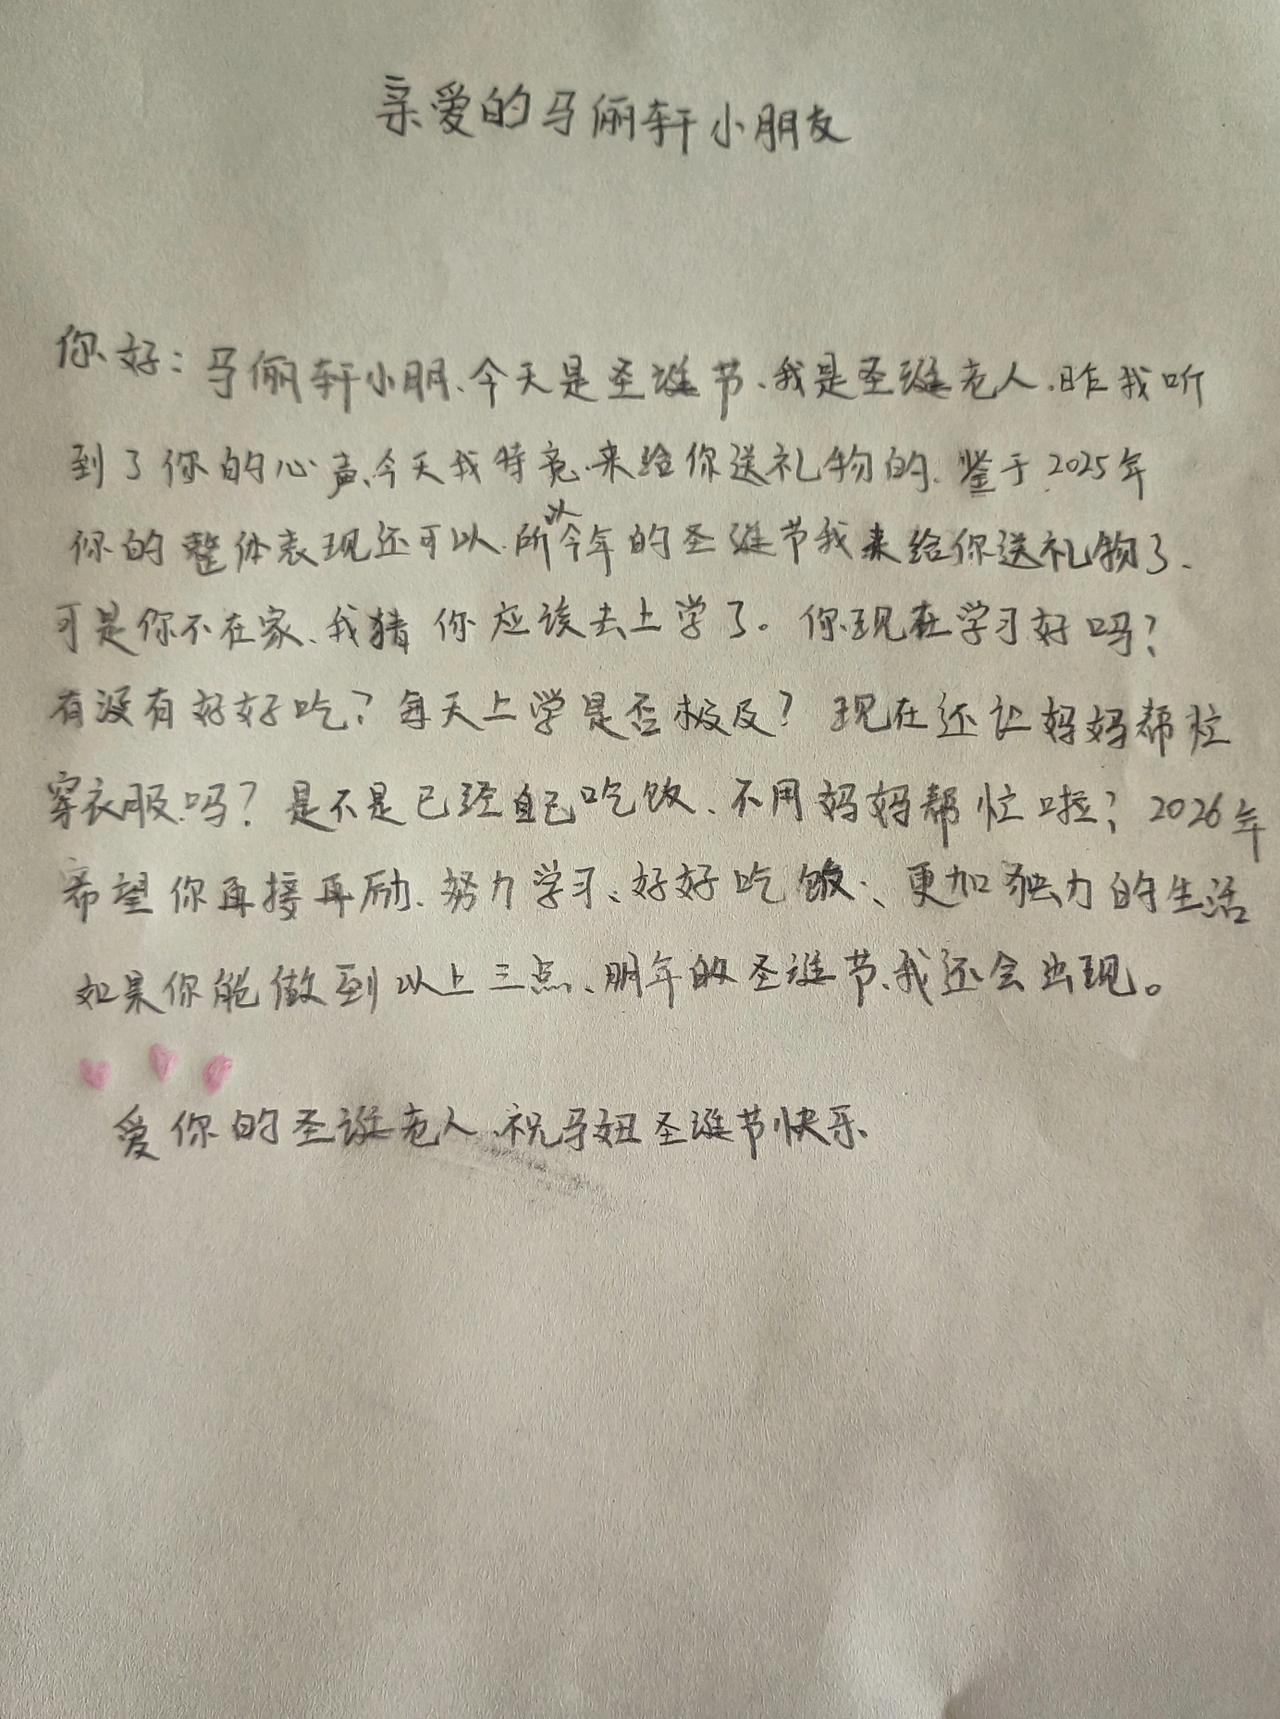 亲爱的马俪轩小朋友
你好：马俪轩小朋、今天是圣诞节、我是圣诞老人、昨我听
到了你的心声、今天我特意来给你送礼物的、鉴于2025年
你的整体表现还可以、所以今年的圣诞节我来给你送礼物了、
可是你不在家、我猜你应该去上学了。你现在学习好吗？
有没有好好吃？每天上学是否极及？现在还让妈妈帮忙
穿衣服吗？是不是已经自己吃饭、不用妈妈帮忙啦？2026年
希望你再接再励、努力学习、好好吃饭、更加独力的生活
如果你能做到以上三点、明年的圣诞节、我还会出现。
爱你的圣诞老人、祝马妞圣诞节快乐